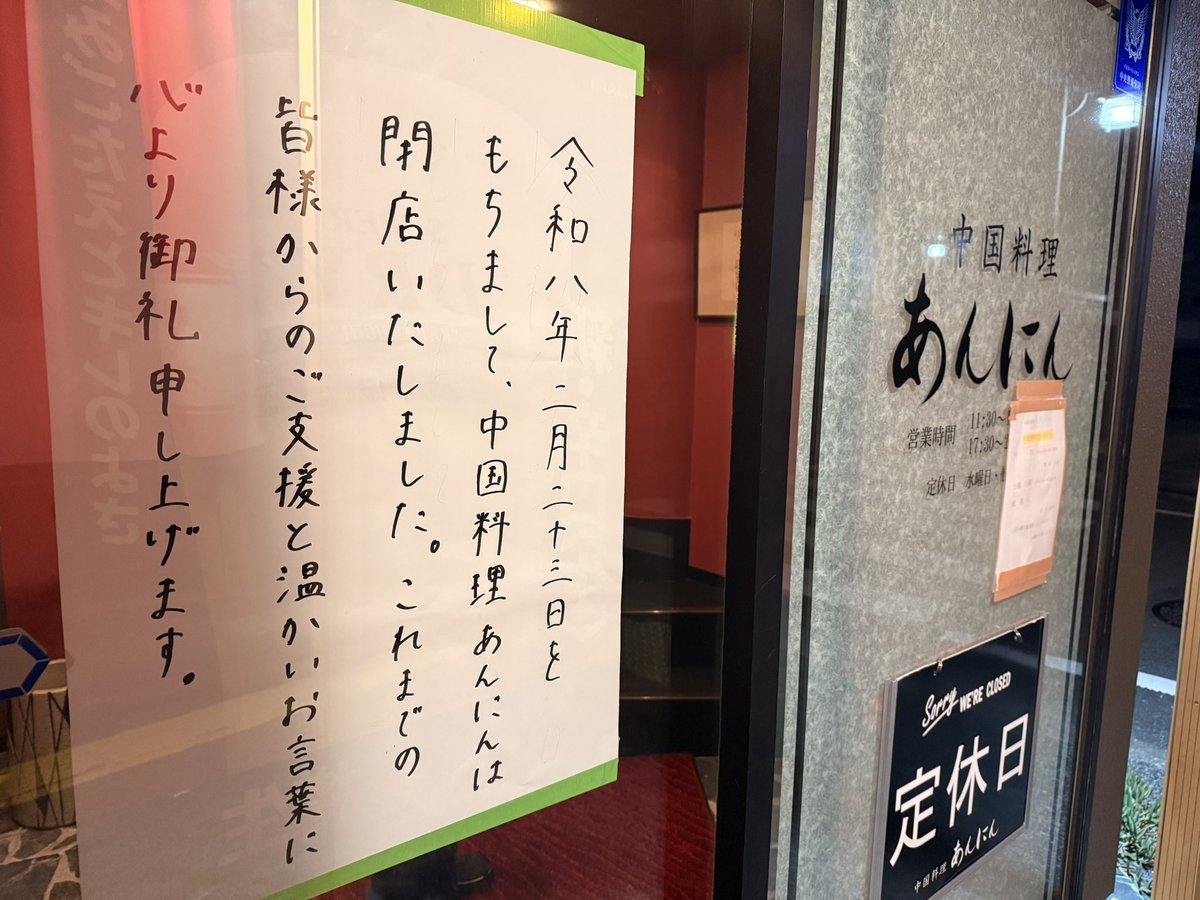 令和八年二月二十三日を
もちまして、中国料理あんにんは
閉店いたしました。これまでの
皆様からのご支援と温かいお言葉に
心より御礼申し上げます。
中国料理
あんにん
営業時間 11:30〜
17:30〜
定休日 水曜日・
Sorry WE'RE CLOSED
定休日
中国料理 あんにん